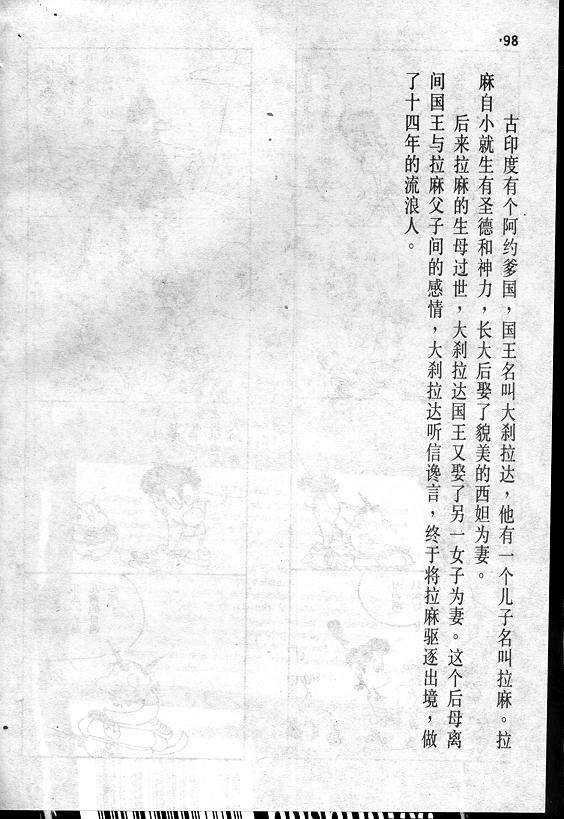 98
古印度有个阿约爹国，国王名叫大刹拉达，他有一个儿子名叫拉麻。拉
麻自小就生有圣德和神力，长大后娶了貌美的西妲为妻。
后来拉麻的生母过世，大刹拉达国王又娶了另一女子为妻。这个后母离
间国王与拉麻父子间的感情，大刹拉达听信谗言，终于将拉麻驱逐出境，做
了十四年的流浪人。